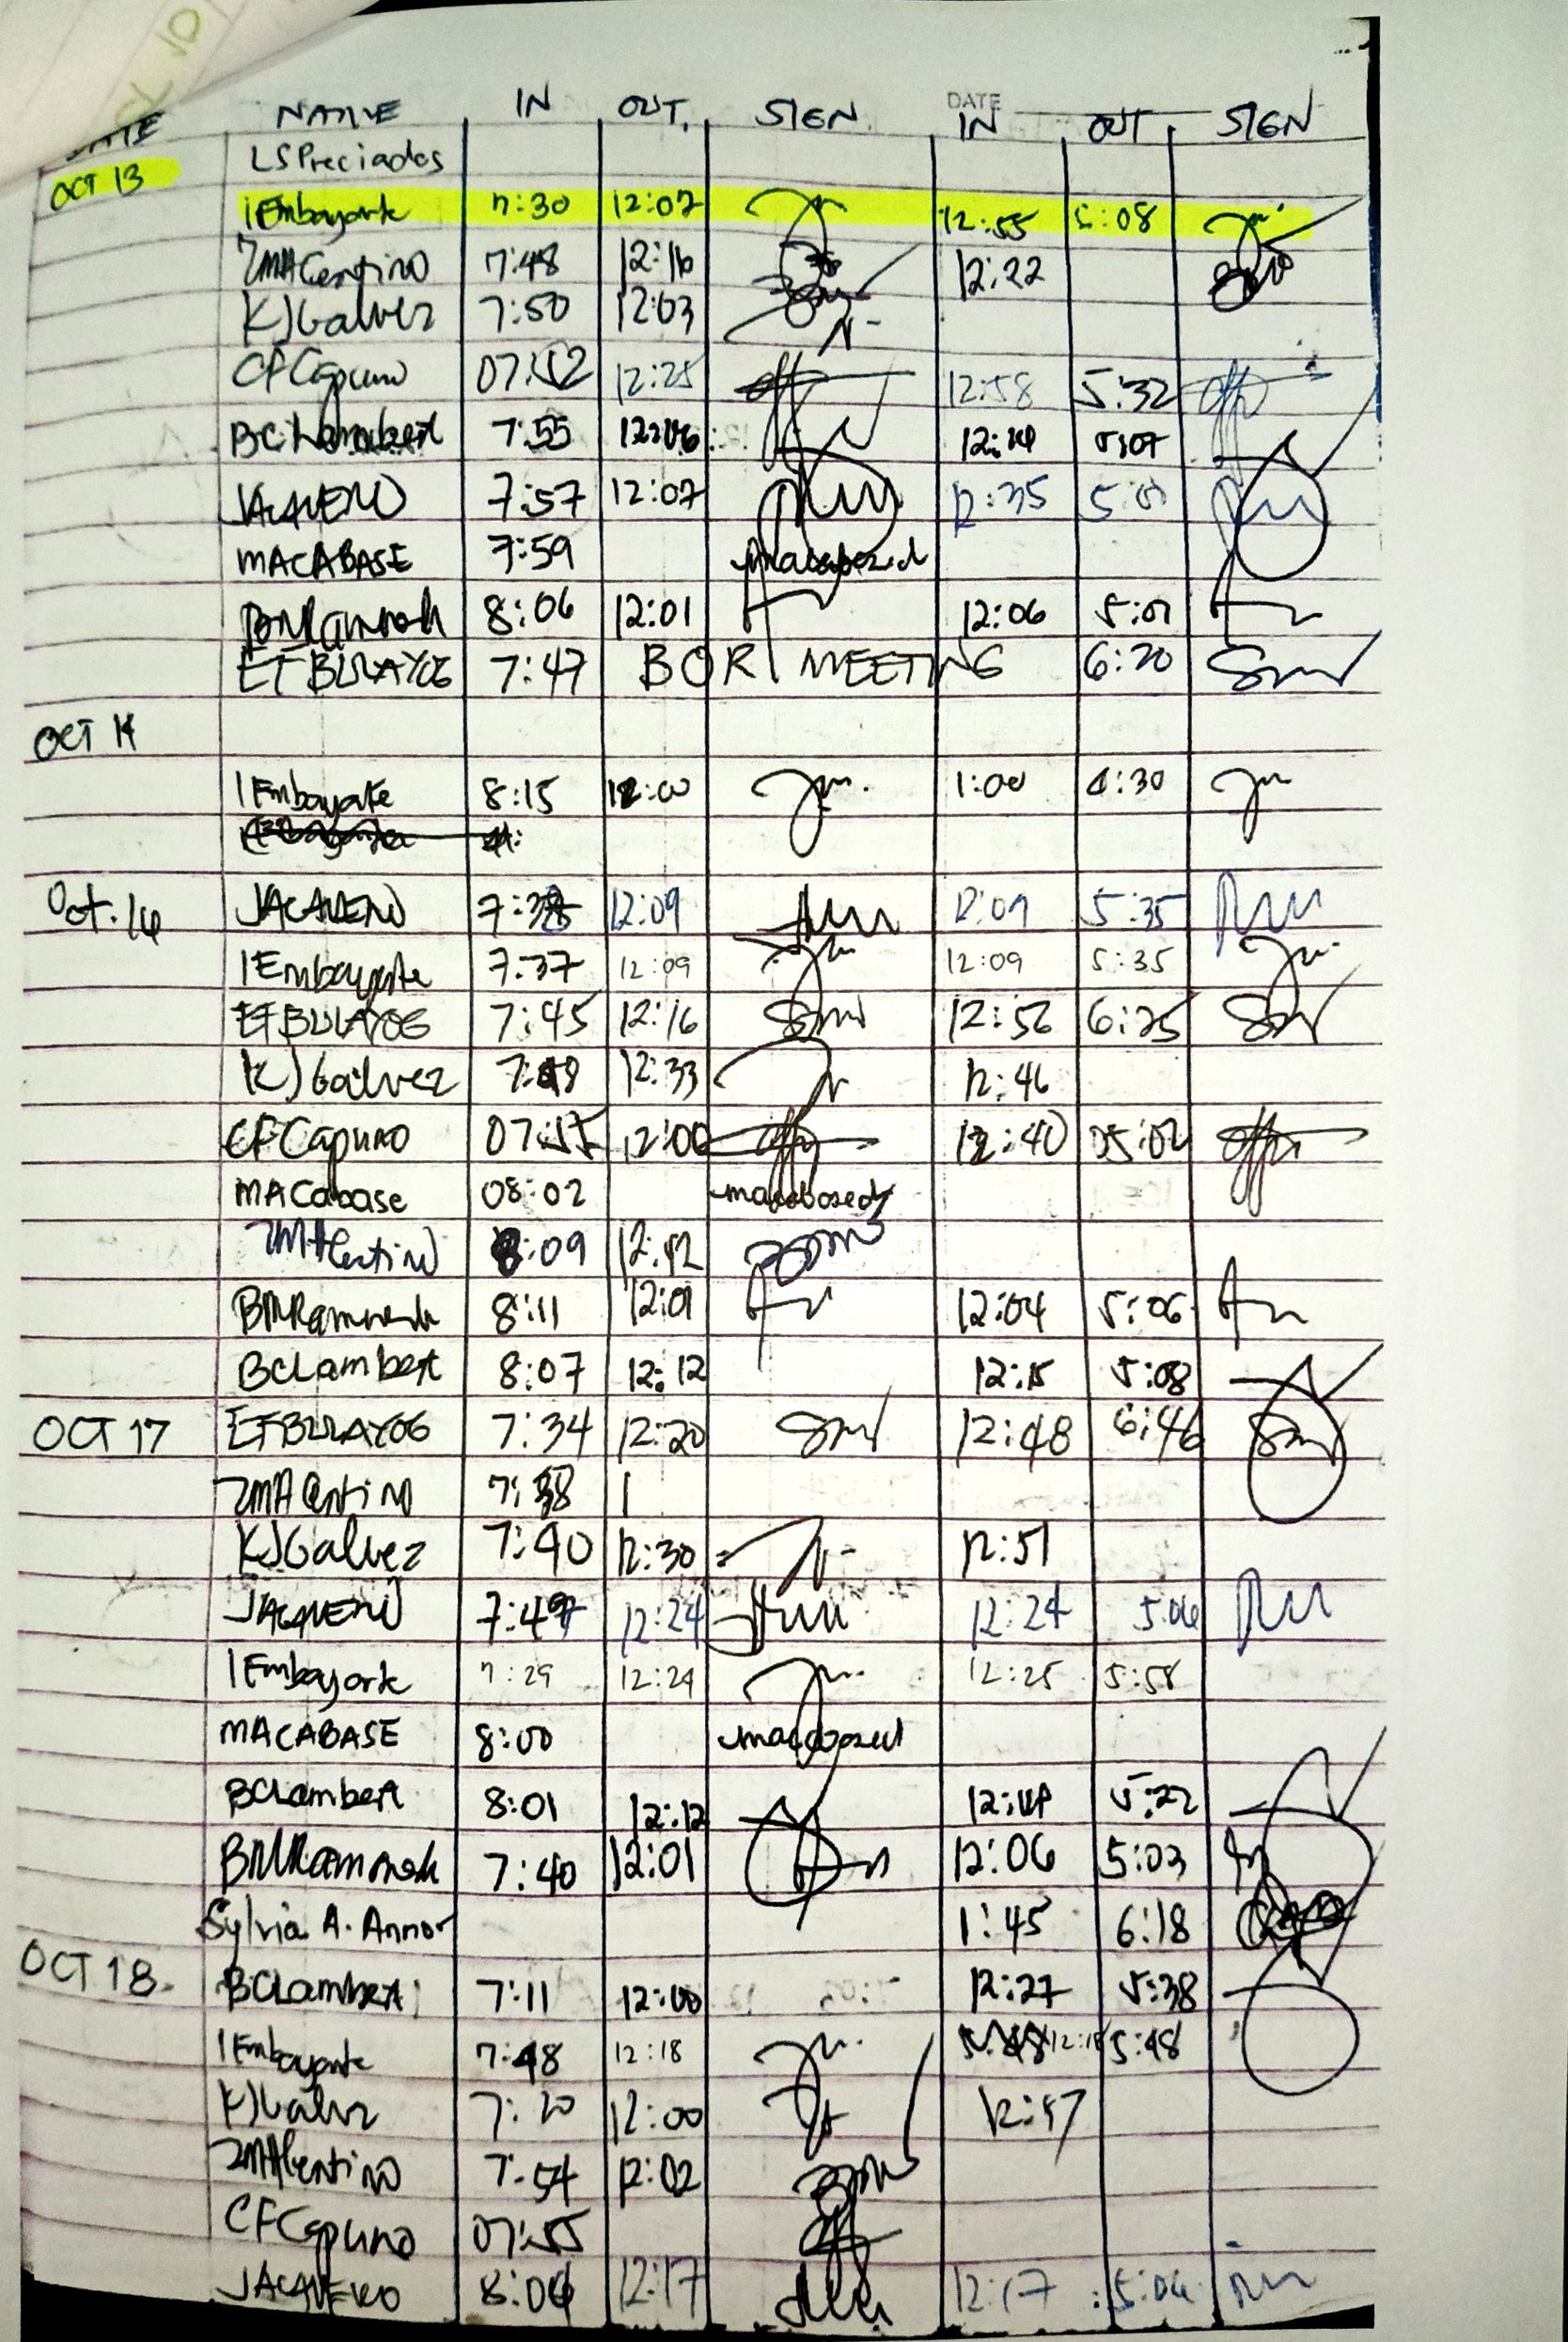 NAME IN OUT. SIGN DATE IN OUT SIGN
LSPreciados
OCT 13
IEmbayarte 7:30 12:07 12:55 5:08
ZMACentino 7:48 12:16 12:22
KJGalvez 7:50 12:03
CFCapuno 12:25 12:58 5:32
BCLambert 7:55 12:14 5:07
JACAVERO 7:57 12:07 12:35
MACABASE 7:59
BMRamoneda 8:06 12:01 12:06 5:01
EFBULAYOG 7:47 BOR MEETING 6:20
OCT 14
IEmbayarte 8:15 12:00 1:00 4:30
Oct. 16 JACAVERO 12:09 12:09 5:35
IEmbayarte 7:37 12:09 12:09 5:35
EFBULAYOG 7:45 12:16 12:56 6:25
KJGalvez 7:48 12:33 12:46
CFCapuno 07:55 12:00 12:40 05:02
MACabase 08:02
ZMACentino 8:09 12:12
BMRamoneda 8:11 12:01 12:04 5:06
BCLambert 8:07 12:12 12:15 5:08
OCT 17 EFBULAYOG 7:34 12:20 12:48 6:46
ZMACentino 7:38
KJGalvez 7:40 12:30 12:51
JACAVERO 12:24 12:24 5:06
IEmbayarte 7:29 12:24 12:25 5:58
MACABASE 8:00
BCLambert 8:01 12:12 12:14 5:22
BMRamoneda 7:40 12:01 12:06 5:03
Sylvia A. Annor 1:45 6:18
OCT 18 BCLambert 7:11 12:00 12:27 5:38
IEmbayarte 7:48 12:18 12:18 5:48
KJGalvez 7:20 12:00 12:57
ZMACentino 7:54 12:02
CFCapuno 07:55
JACAVERO 12:17 12:17 5:06